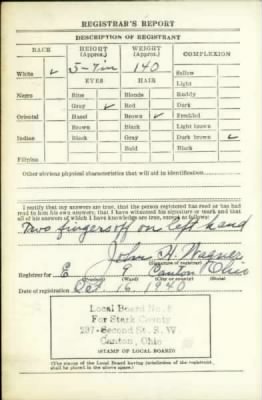 REGISTRAR'S REPORT
DESCRIPTION OF REGISTRANT
RACE HEIGHT (Approx.) WEIGHT (Approx.) COMPLEXION
White ✓ 5-7 in 140 Sallow
EYES HAIR Light
Negro Blue Blonde Ruddy
Gray ✓ Red Dark
Oriental Hazel Brown ✓ Freckled
Brown Black Light brown
Indian Black Gray Dark brown ✓
Bald Black
Filipino
Other obvious physical characteristics that will aid in identification
I certify that my answers are true; that the person registered has read or has had
read to him his own answers; that I have witnessed his signature or mark and that
all of his answers of which I have knowledge are true, except as follows:
Two fingers off on left hand
John H. Wagner
(Signature of registrar)
Registrar for E 9 Canton Ohio
(Precinct) (Ward) (City or county) (State)
Date of registration Oct. 16 1940
Local Board No. 5
For Stark County
237-Second St. S. W
Canton, Ohio
(STAMP OF LOCAL BOARD)
(The stamp of the Local Board having jurisdiction of the registrant
shall be placed in the above space.)